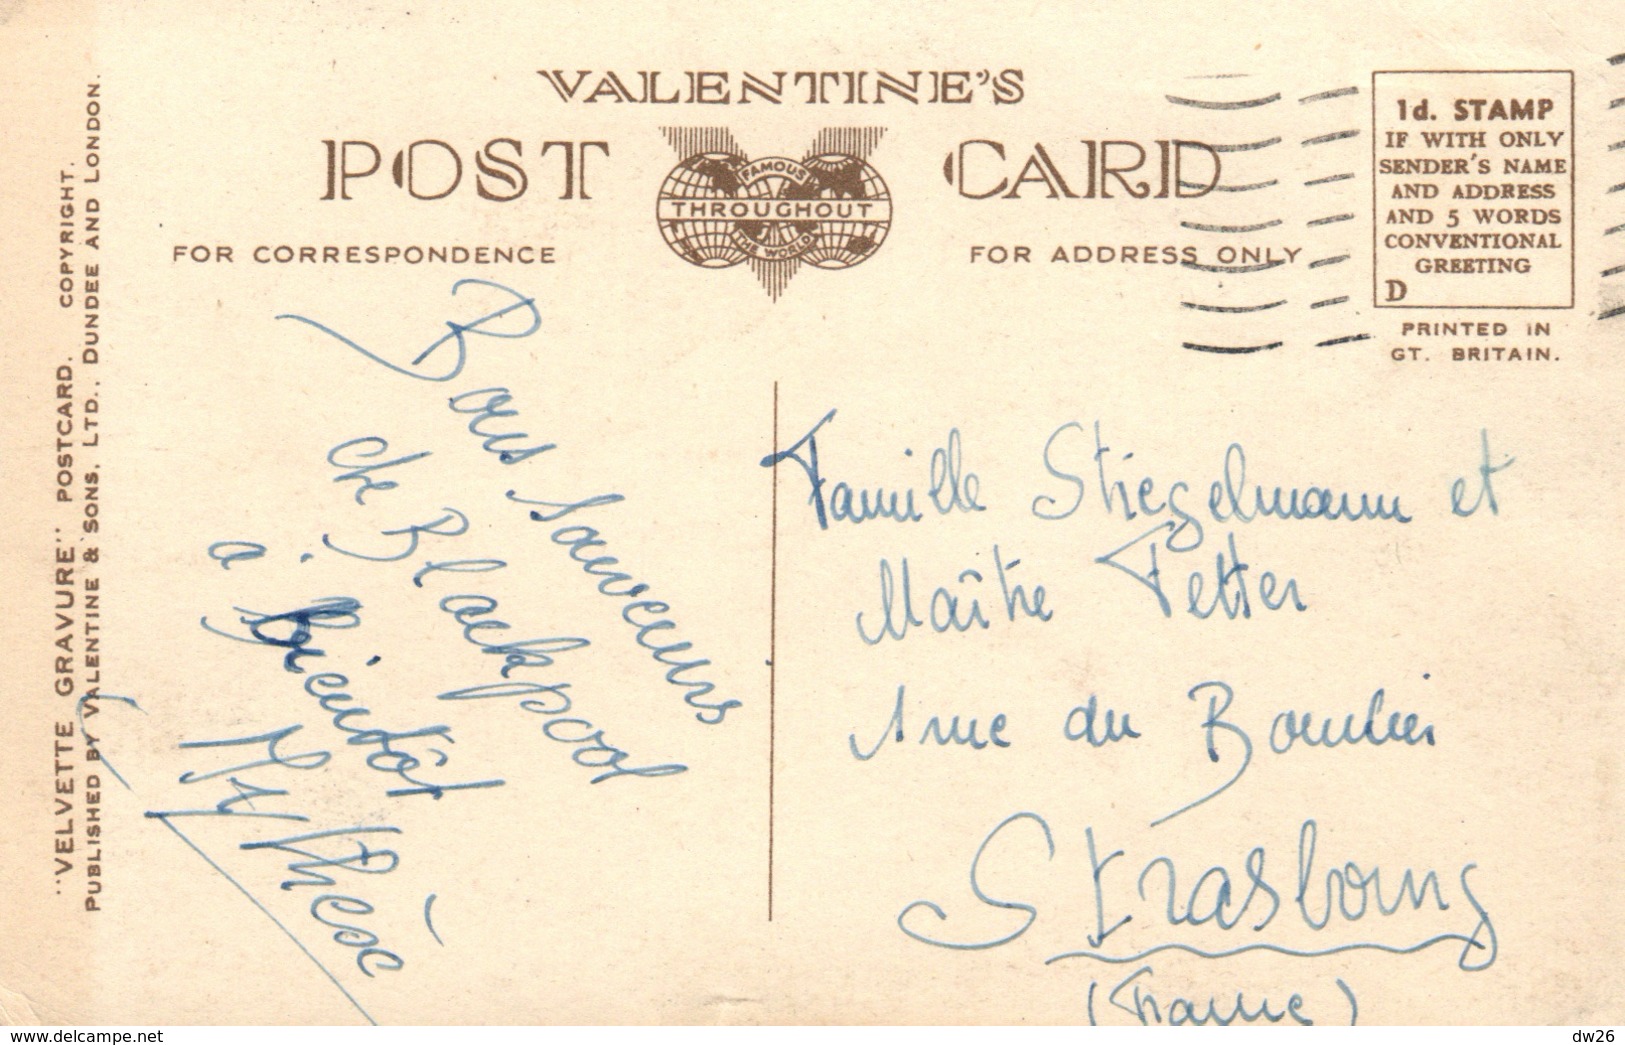 VALENTINE'S
POST CARD
FAMOUS
THROUGHOUT
THE WORLD
FOR CORRESPONDENCE
FOR ADDRESS ONLY
1d. STAMP
IF WITH ONLY
SENDER'S NAME
AND ADDRESS
AND 5 WORDS
CONVENTIONAL
GREETING
D
PRINTED IN
GT. BRITAIN.
"VELVETTE GRAVURE" POSTCARD. COPYRIGHT.
PUBLISHED BY VALENTINE & SONS, LTD., DUNDEE AND LONDON.
Bons souvenirs
de Blackpool
à bientôt
Famille Stiegelmann et
Maître Fetter
rue du
Strasbourg
(France)
© delcampe.net
dw26